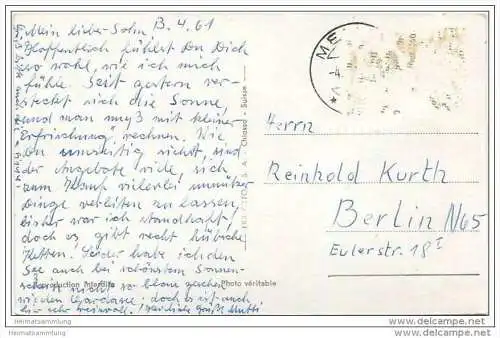 B. 4. 61
Mein lieber Sohn,
Hoffentlich fühlst Du Dich
so wohl, wie ich mich
fühle. Seit gestern ver-
steckt sich die Sonne,
und man muß mit kleiner
"Erfrischung" rechnen. Wie
Du umseitig siehst, sind
der Angebote viele, sich
zum Kauf vielerlei unnützer
Dinge verleiten zu lassen,
bisher war ich standhaft,
doch es gibt recht hübsche
Ketten. Leider habe ich den
See auch bei schönstem Sonnen-
schein nicht so blau gesehen
wie den Gardasee, doch es ist auch
hier sehr reizvoll. Herzliche Grüße Mutti
ME
Herrn
Reinhold Kurth
Berlin N65
Eulerstr. 18 I
S. A. - Chiasso - Suisse
Reproduction interdite
Photo véritable
Heimatsammlung
Heimatsammlung
www.delcampe.net